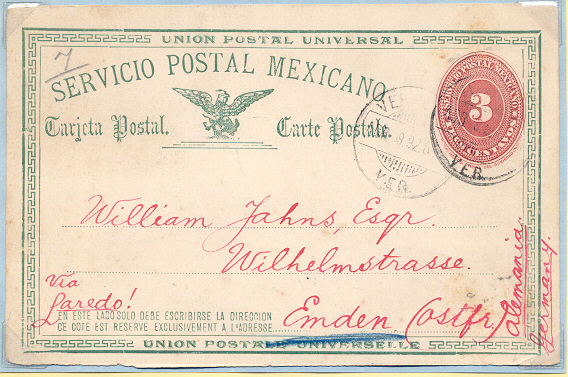 UNION POSTAL UNIVERSAL
7
SERVICIO POSTAL MEXICANO
SERVICIO POSTAL MEXICANO
3
CENTAVOS
Tarjeta Postal.
Carte Postale.
VER.
VER.
William Jahns, Esqr.
Wilhelmstrasse.
Via
Laredo!
EN ESTE LADO SOLO DEBE ESCRIBIRSE LA DIRECCION
CE COTE EST RESERVE EXCLUSIVEMENT A L'ADRESSE.
Emden (Ostfr.)
Alemania.
Germany.
UNION POSTALE UNIVERSELLE